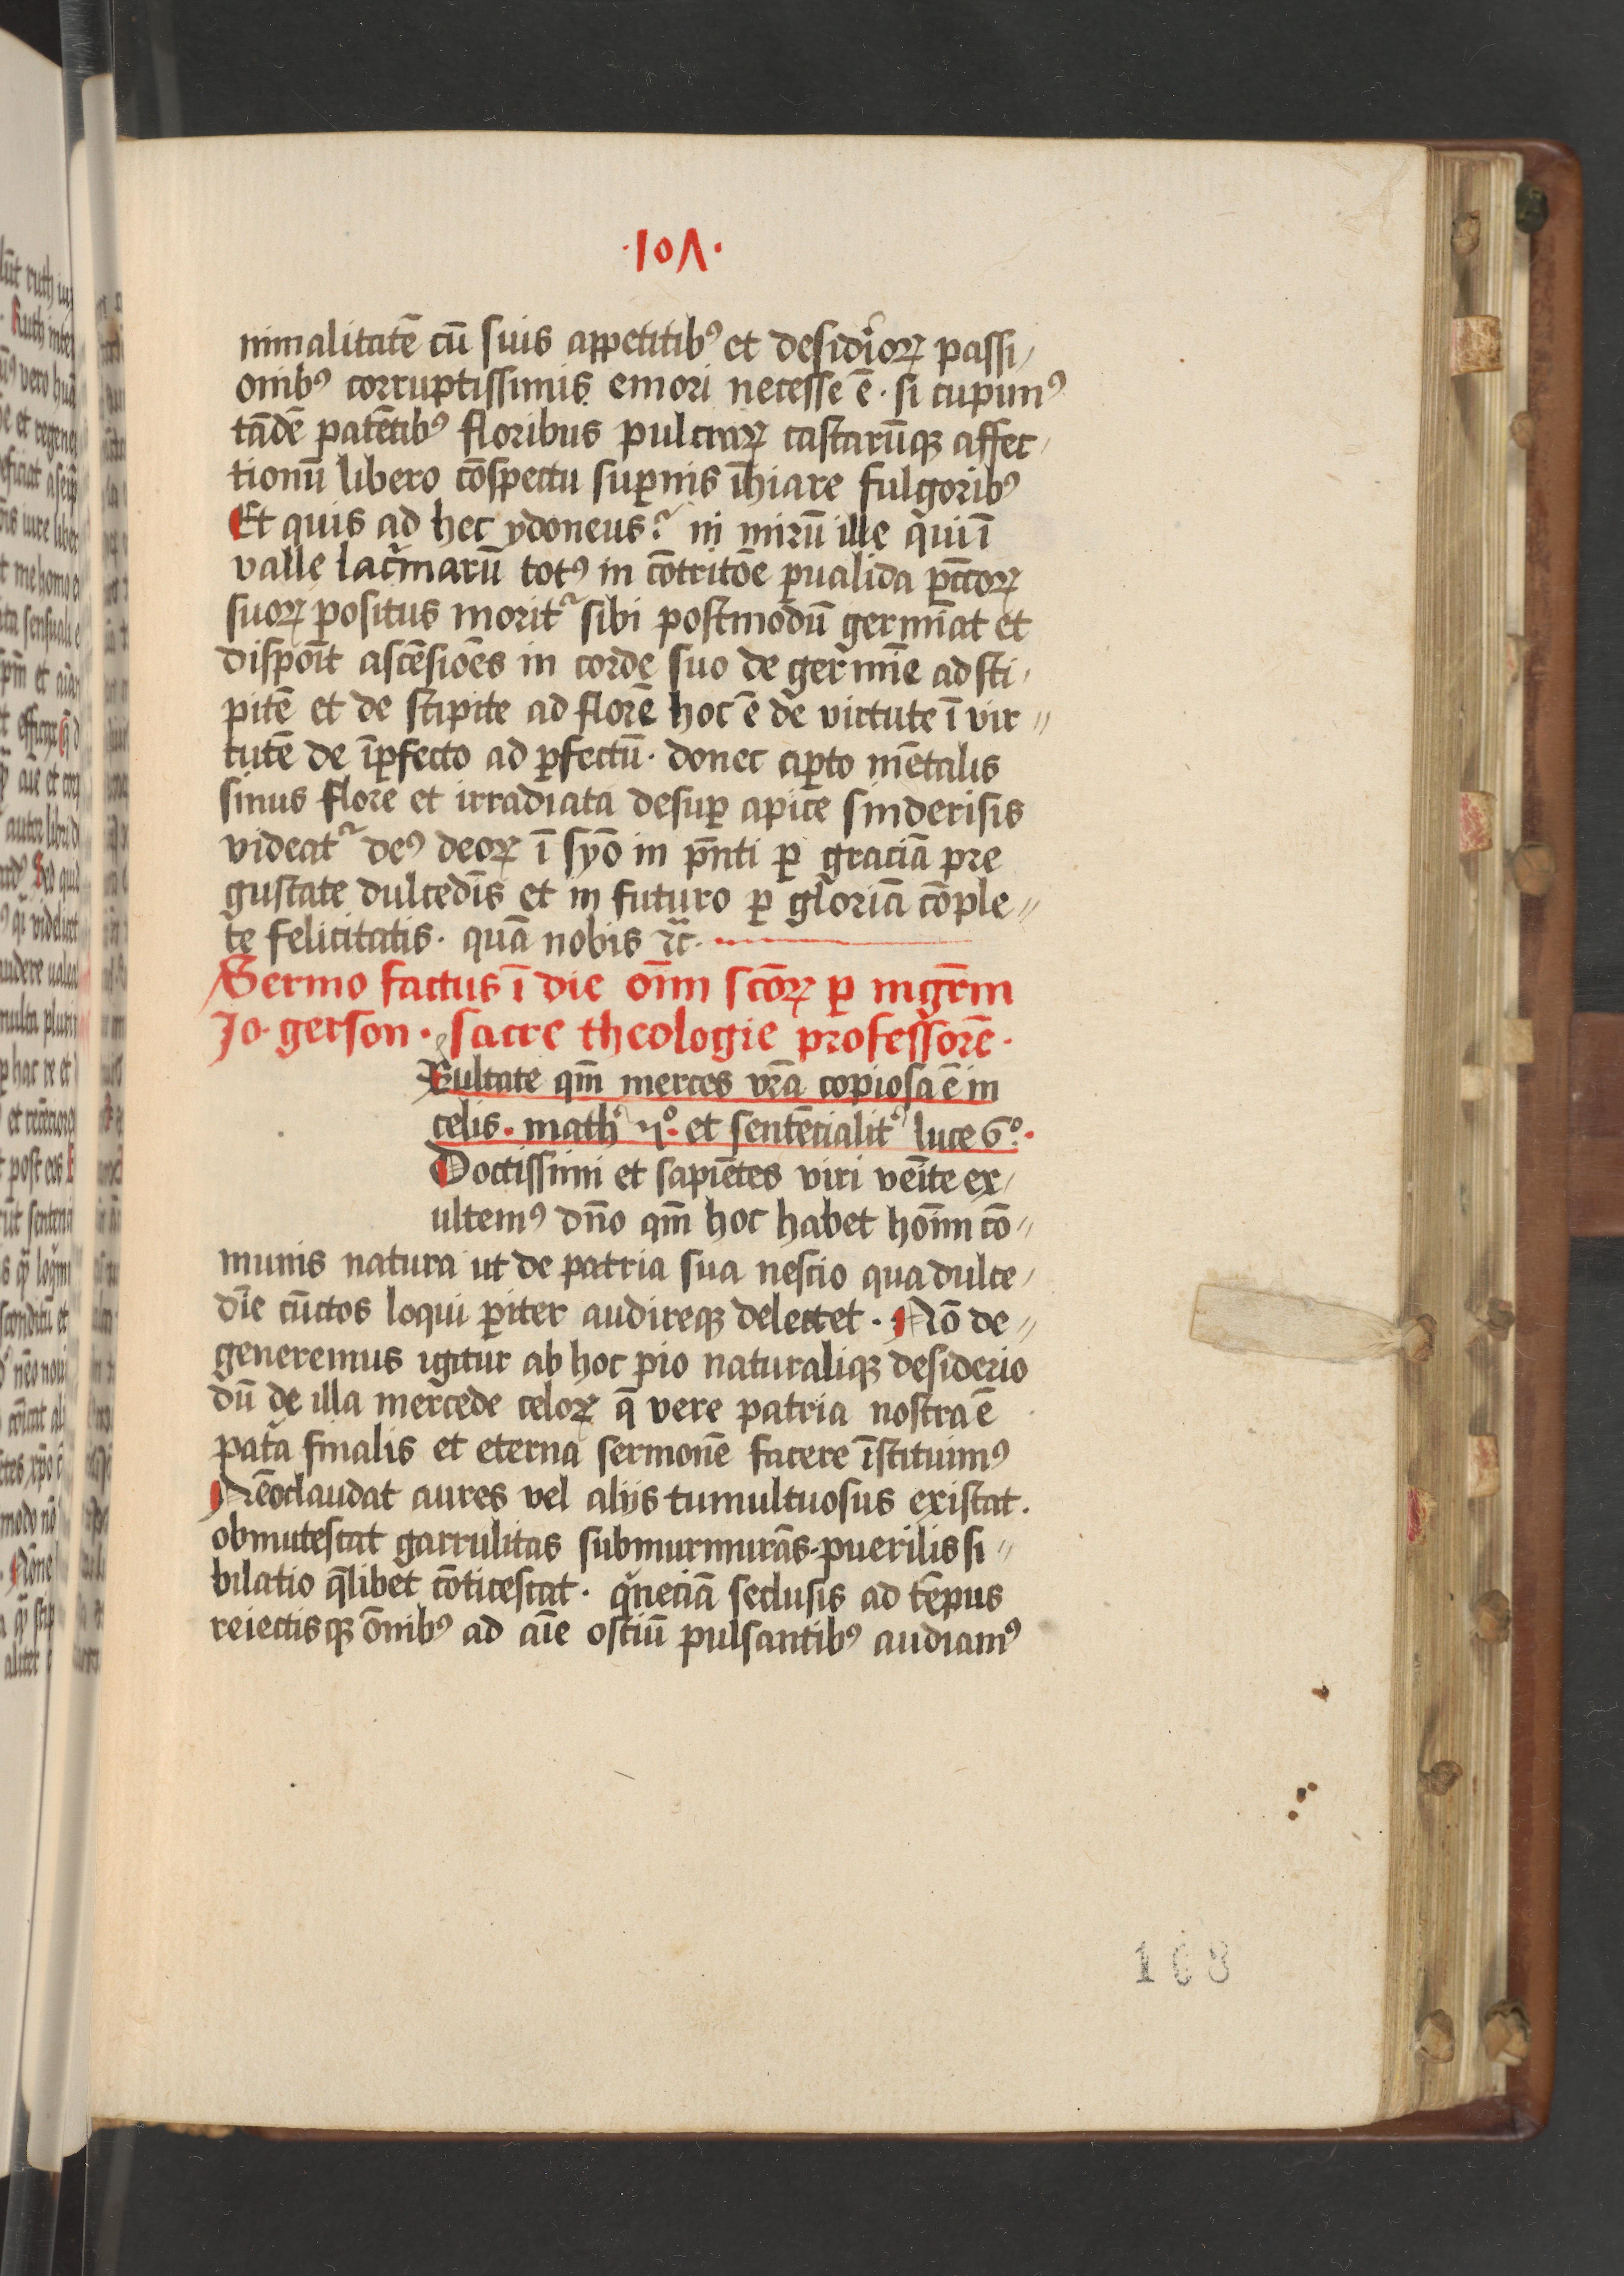 ·107·
nimalitatē cū suis appetitibꝰ et desidiorꝝ passi/
onibꝰ corruptissimis emori necesse ē· si cupimꝰ
tādē patētibꝰ floribus pulcrarꝝ castarūqꝫ affec/
tionū libero cōspectu suꝑnis īhiare fulgoribꝰ
Et quis ad hec ydoneus? ni mirū ille qui ī
valle lacͬmarū totꝰ in cōtritōe ꝑualida pctōrꝝ
suorꝝ positus moritͬ sibi postmodū germīat et
dispoīt ascēsiōes in corde suo de germīe ad sti/
pitē et de stipite ad florē hoc ē de virtute ī vir//
tutē de īꝑfecto ad ꝑfectū· donec aꝑto mētalis
sinus flore et irradiata desuꝑ apice sinderisis
videatͬ deꝰ deorꝝ ī syō in pn̄ti ꝑ graciā pre
gustate dulcedīs et in futuro ꝑ gloriā cōple//
te felicitatis· quā nobis ⁊c̄·
Sermo factus ī die oīm scōrꝝ ꝑ mgr̄m
Jo· gerson· sacre theologie professorē·
Exultate qm̄ merces vr̄a copiosa ē in
celis· math 5ͦ· et sentēcialitͬ luce 6ͦ·
Doctissimi et sapiētes viri veīte ex/
ultemꝰ dn̄o qm̄ hoc habet hoīm cō//
munis natura ut de patria sua nescio qua dulce/
dīe cūctos loqui ꝑiter audireqꝫ delectet· Nō de//
generemus igitur ab hoc pio naturaliqꝫ desiderio
dū de illa mercede celorꝝ q̄ vere patria nostra ē
pat̄a finalis et eterna sermonē facere īstituimꝰ
Nēo claudat aures vel alijs tumultuosus existat·
obmutescat garrulitas submurmurās· puerilis si//
bilatio q̄libet cōticescat· qͥneciā seclusis ad tēpus
reiectisqꝫ ōnibꝰ ad aīe ostiū pulsantibꝰ audiamꝰ
108